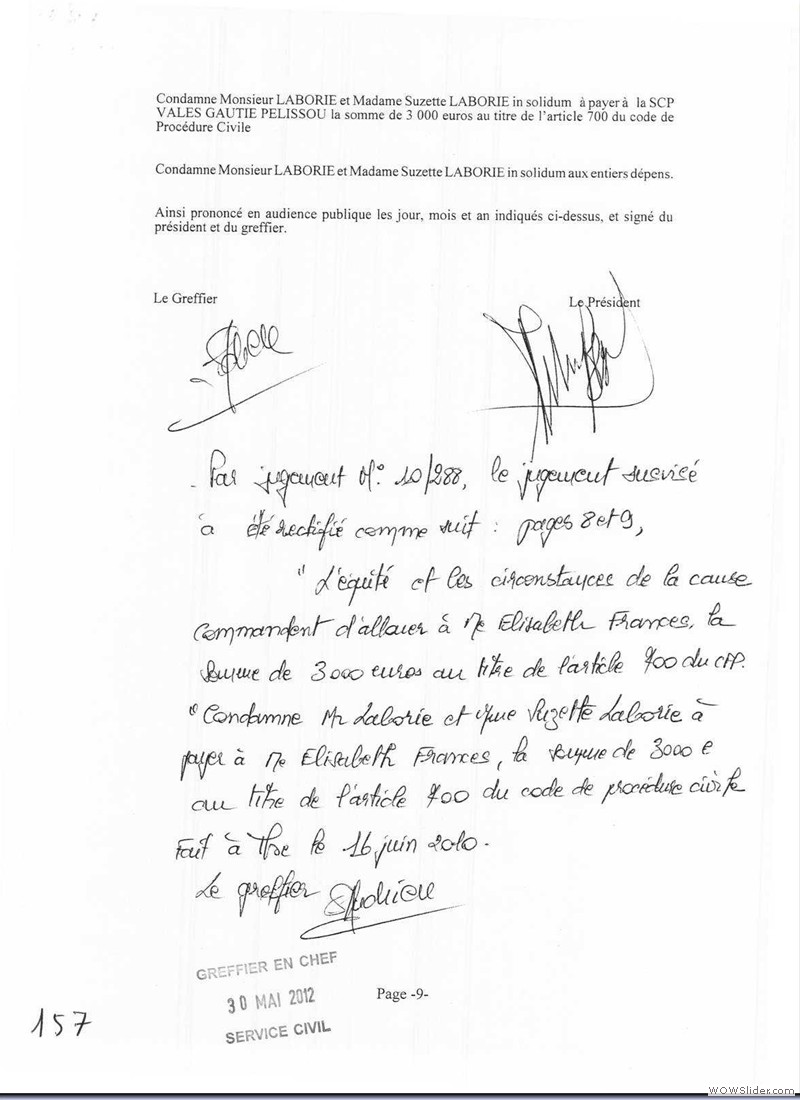 Condamne Monsieur LABORIE et Madame Suzette LABORIE in solidum à payer à la SCP
VALES GAUTIE PELISSOU la somme de 3 000 euros au titre de l'article 700 du code de
Procédure Civile
Condamne Monsieur LABORIE et Madame Suzette LABORIE in solidum aux entiers dépens.
Ainsi prononcé en audience publique les jour, mois et an indiqués ci-dessus, et signé du
président et du greffier.
Le Greffier
Le Président
- Par jugement N° 10/288, le jugement susvisé
a été rectifié comme suit : pages 8 et 9,
" L'équité et les circonstances de la cause
Commandent d'allouer à Me Elisabeth Frances, la
somme de 3000 euros au titre de l'article 700 du CPP.
" Condamne Mr Laborie et Mme Suzette Laborie à
payer à Me Elisabeth Frances, la somme de 3000 e
au titre de l'article 700 du code de procédure civile
Fait à Tlse le 16 juin 2010.
Le greffier
GREFFIER EN CHEF
30 MAI 2012
SERVICE CIVIL
Page -9-
157
WOWSlider.com